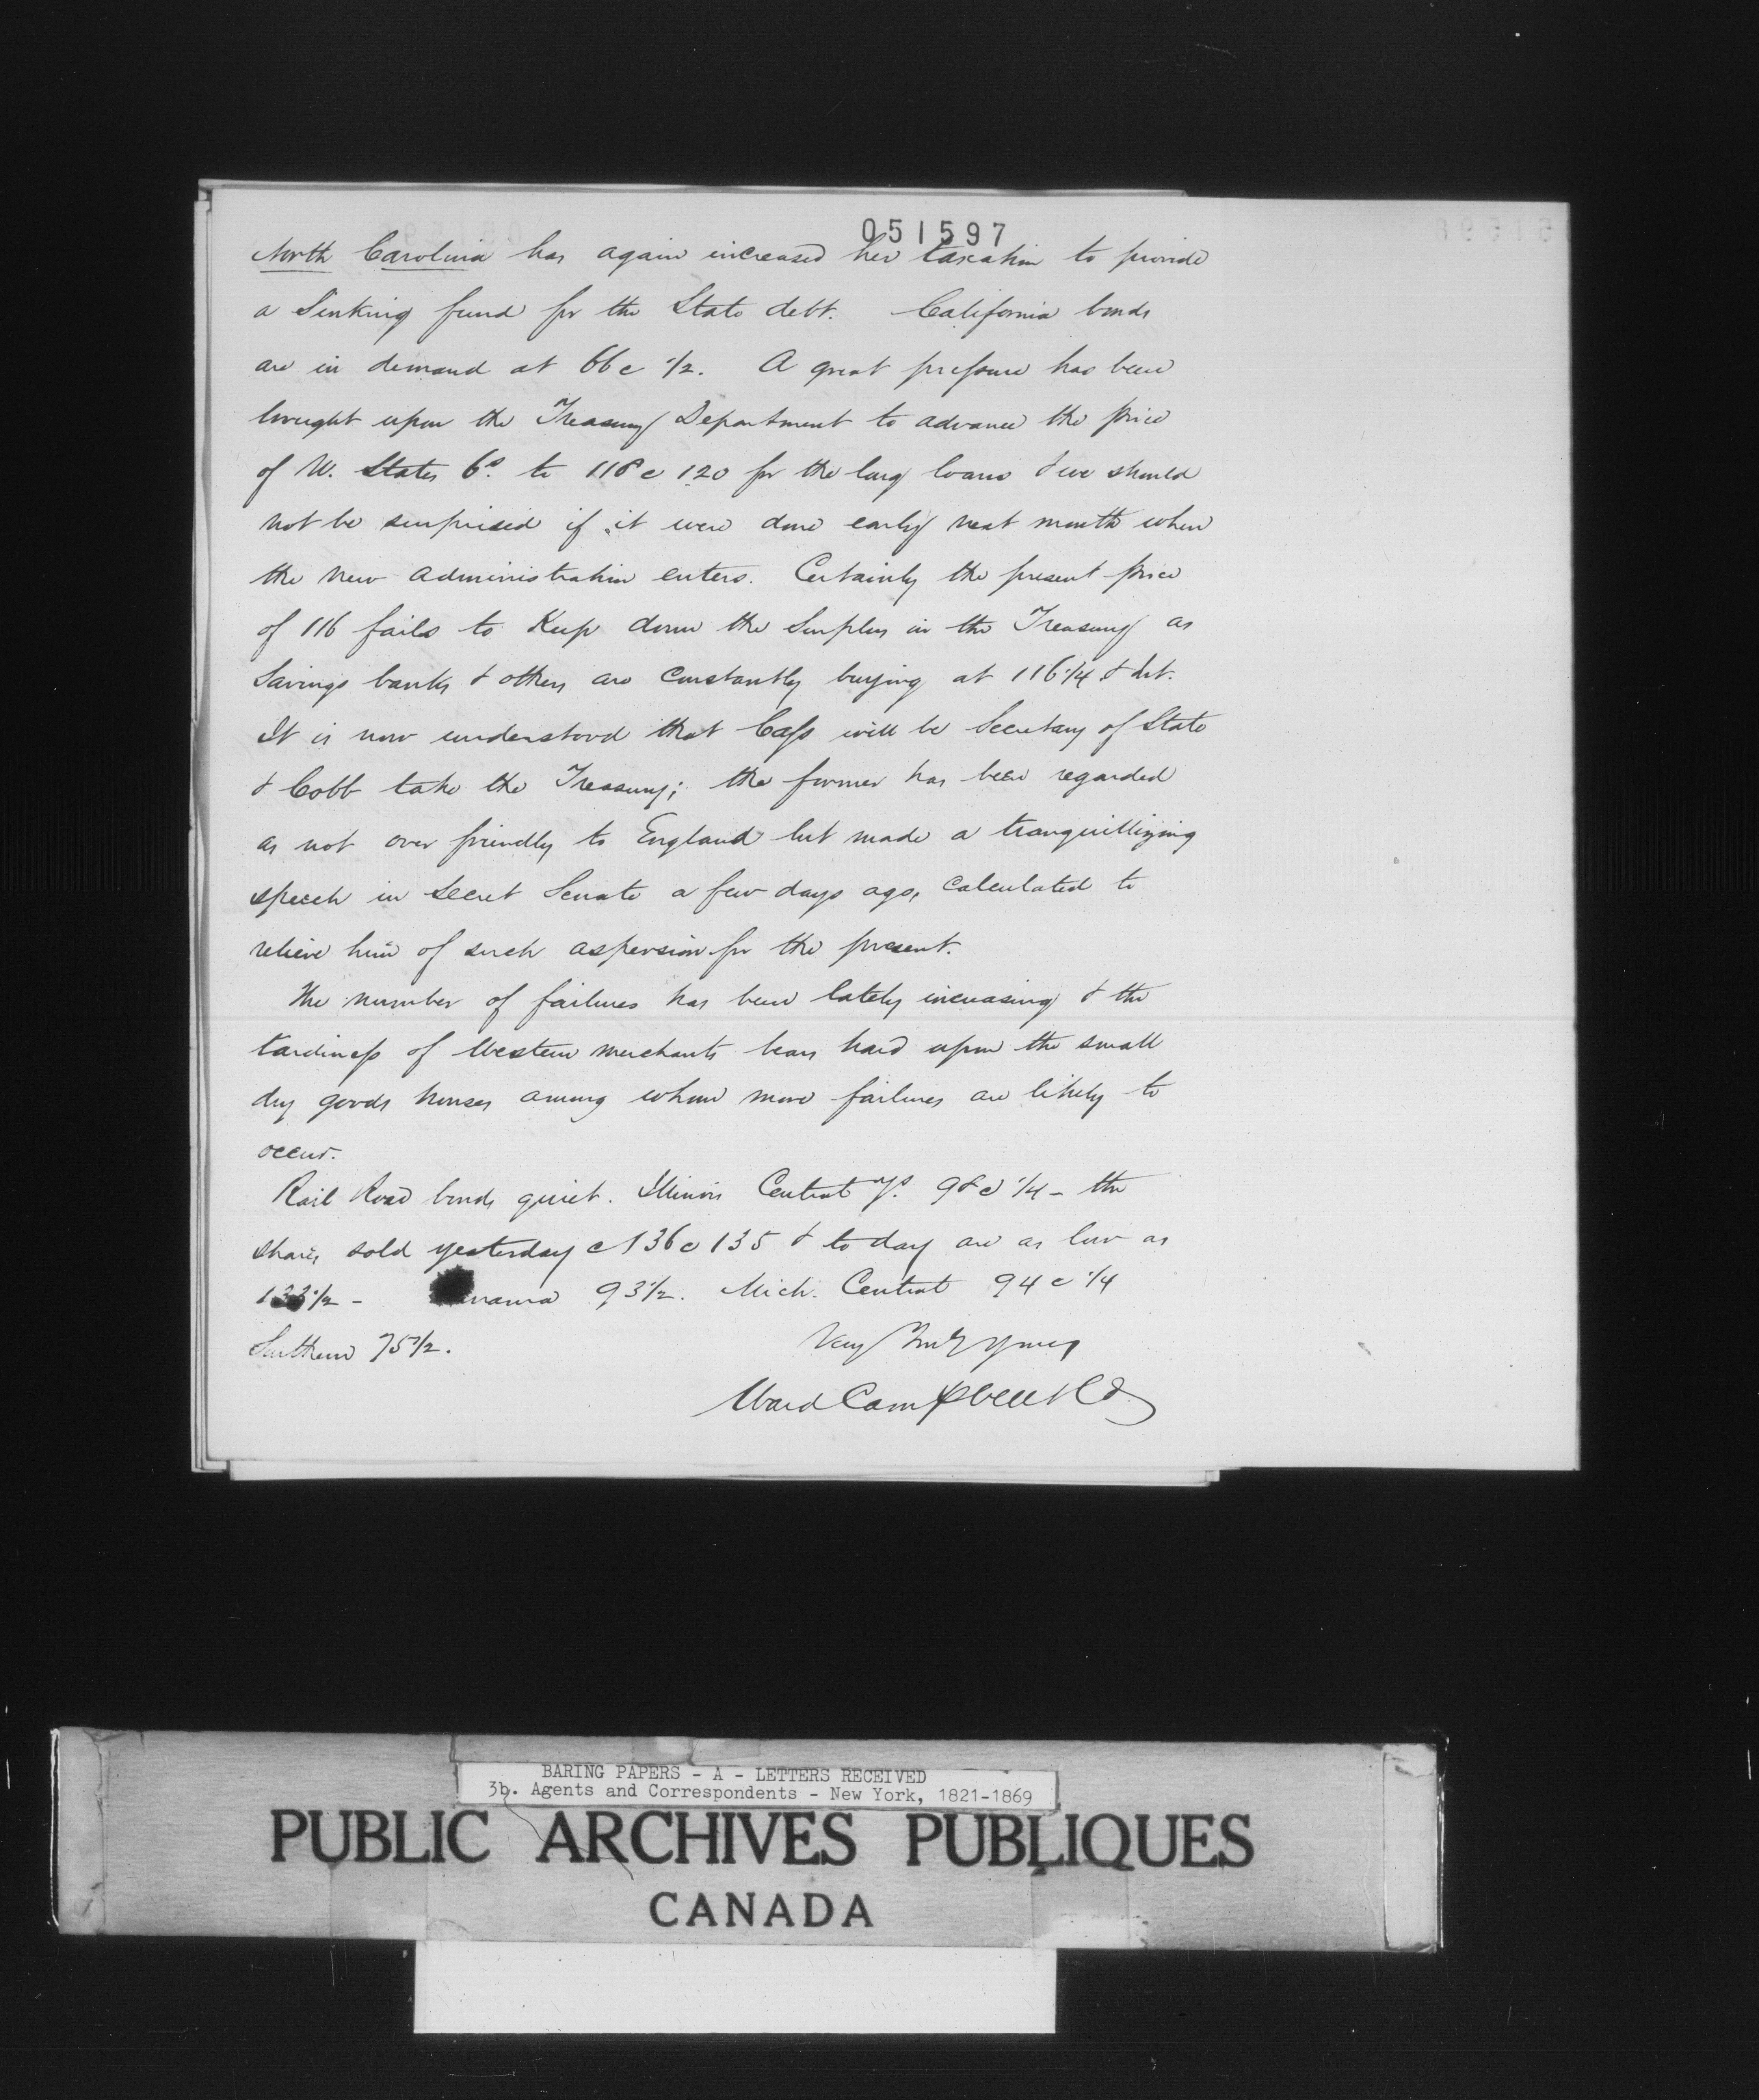 051597
North Carolina has again increased her taxation to provide
a Sinking fund for the State debt. California bonds
are in demand at 66 c 1/2. A great pressure has been
brought upon the Treasury Department to advance the price
of U. States 6s. to 118 c 120 for the long loans & we should
not be surprised if it were done early next month when
the new administration enters. Certainly the present price
of 116 fails to Keep down the Surplus in the Treasury as
Savings banks & others are constantly buying at 116 1/4 & int.
It is now understood that Cass will be Secretary of State
& Cobb take the Treasury; the former has been regarded
as not over friendly to England but made a tranquillizing
speech in Secret Senate a few days ago, calculated to
relieve him of such aspersion for the present.
The number of failures has been lately increasing & the
tardiness of Western merchants bears hard upon the small
dry goods houses among whom more failures are likely to
occur.
Rail Road bonds quiet. Illinois Central 7s. 98 c 1/4 - the
shares sold yesterday c 136 c 135 & to day are as low as
133 1/2 - Panama 93 1/2. Mich. Central 94 c 1/4
Southern 75 1/2.
Very Truly Yours
Ward Campbell & Co
BARING PAPERS - A - LETTERS RECEIVED
3b. Agents and Correspondents - New York, 1821-1869
PUBLIC ARCHIVES PUBLIQUES
CANADA